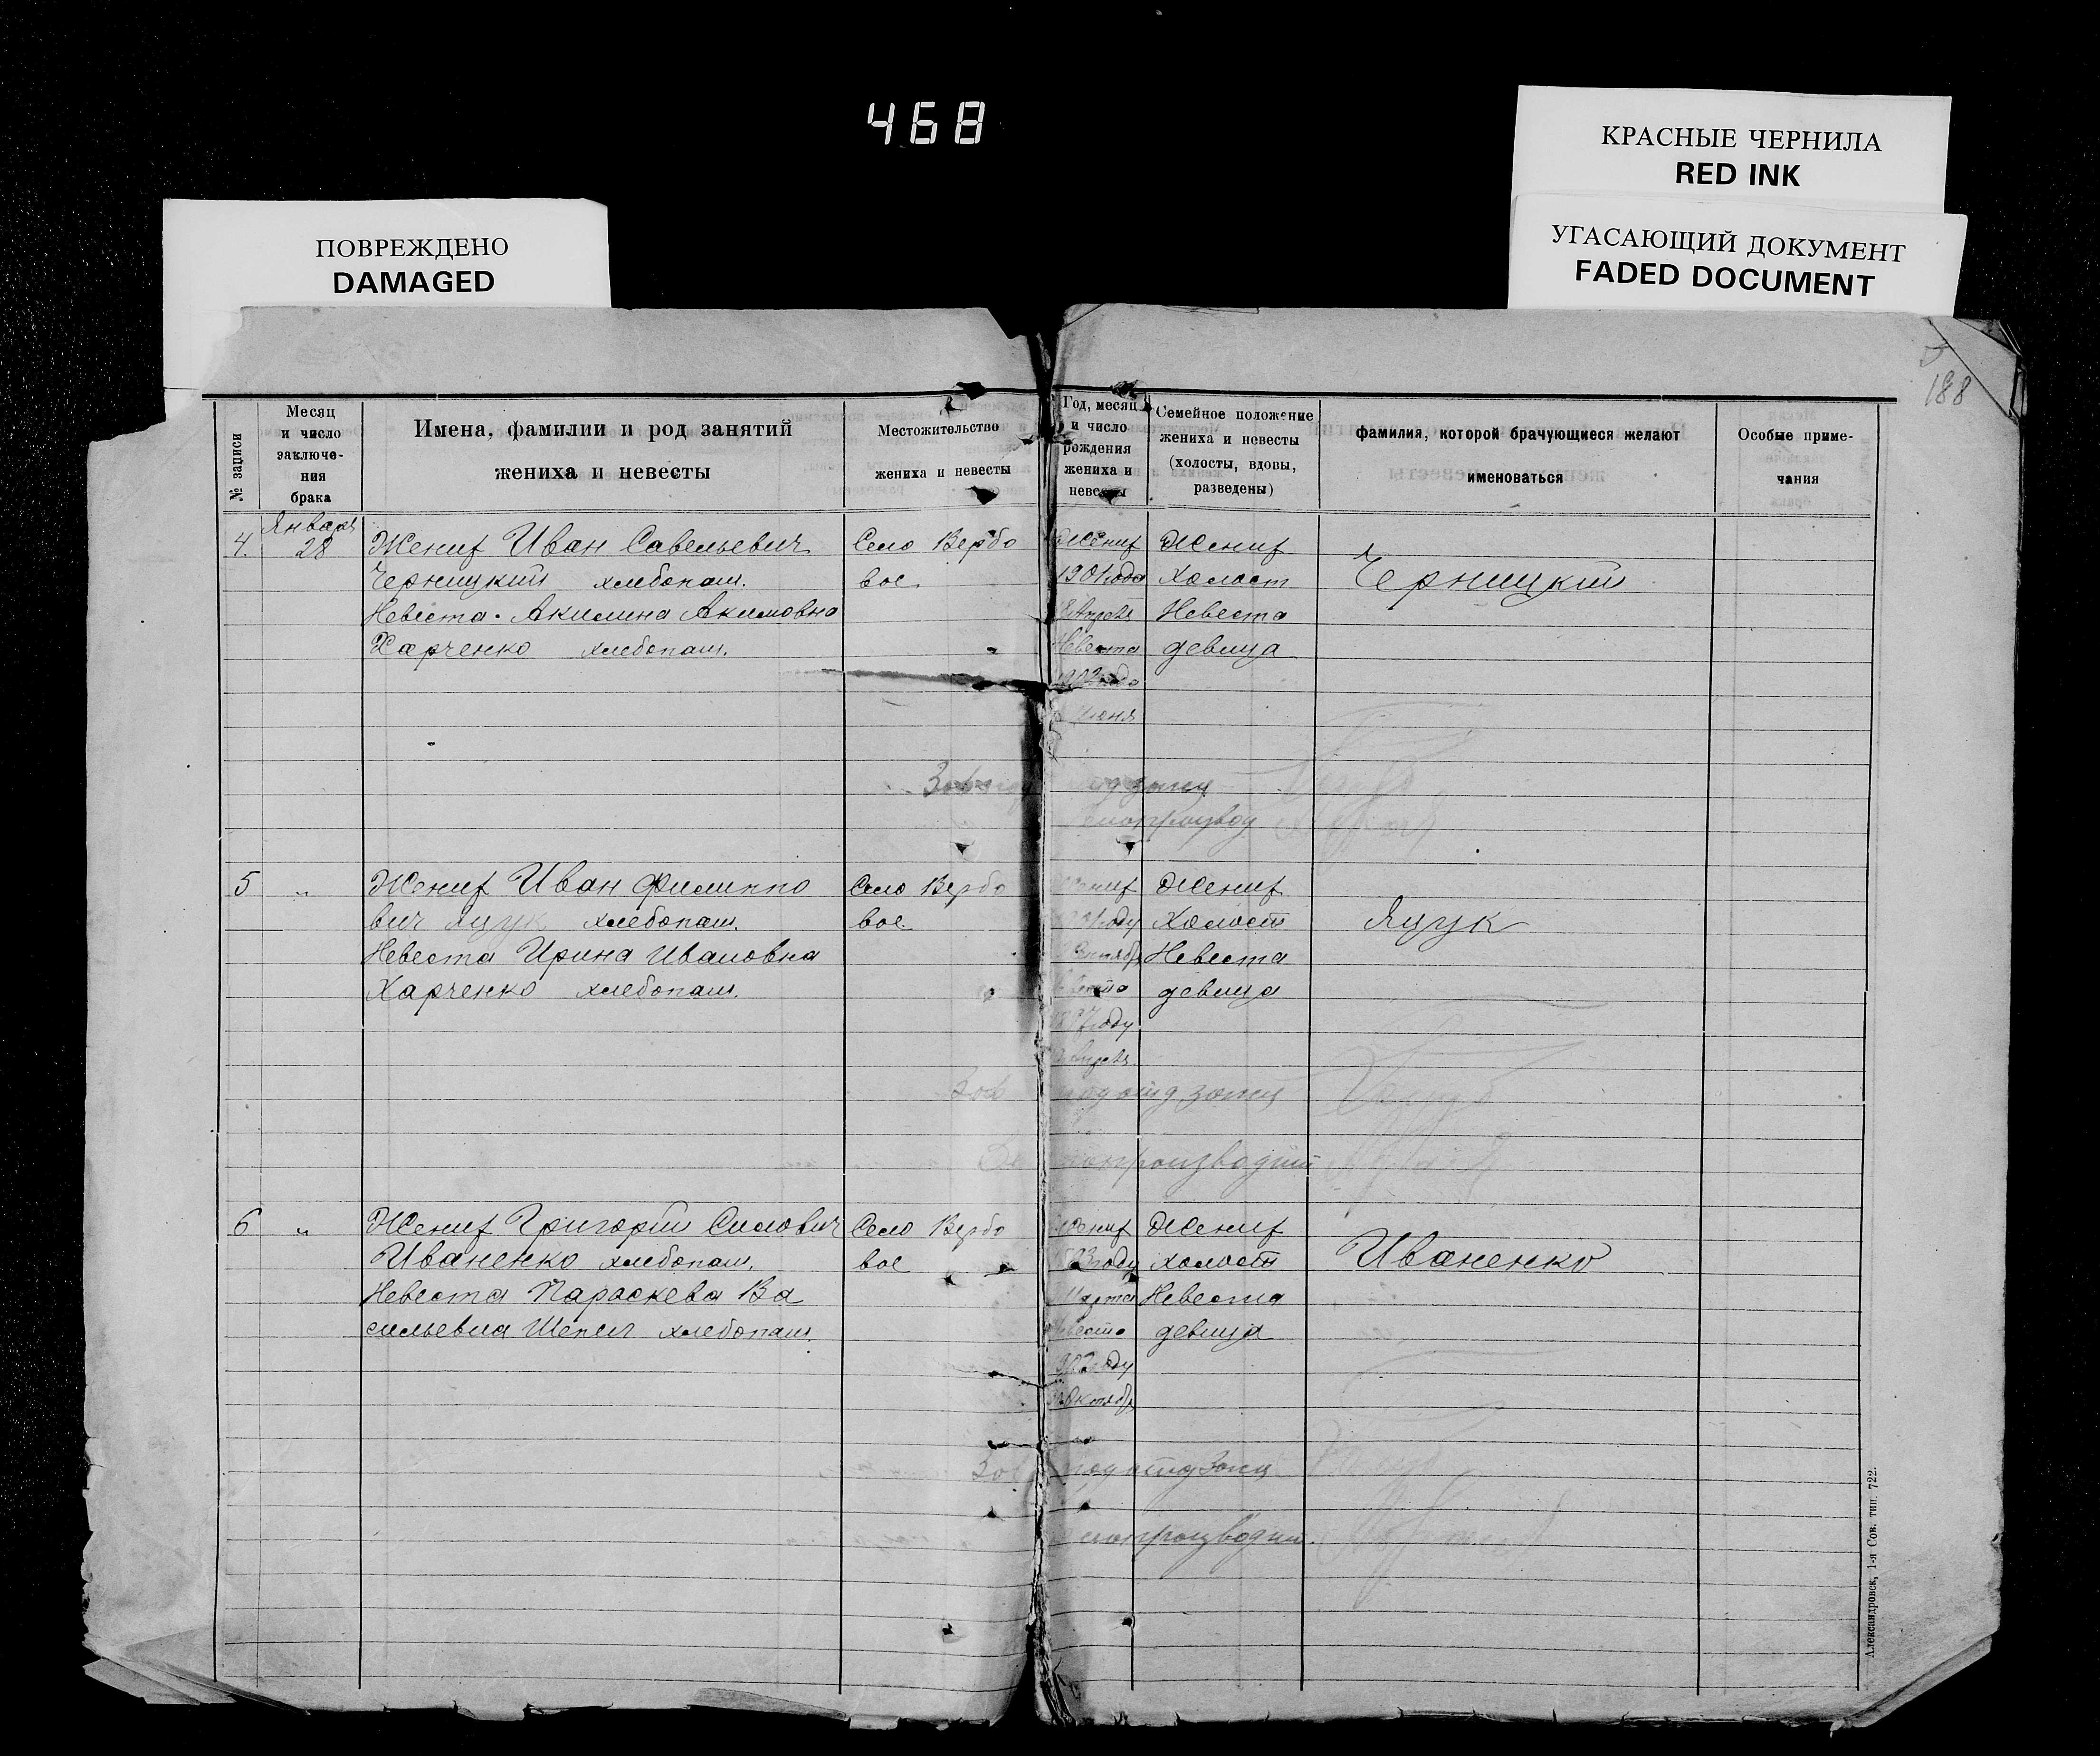 468
КРАСНЫЕ ЧЕРНИЛА
RED INK
УГАСАЮЩИЙ ДОКУМЕНТ
FADED DOCUMENT
ПОВРЕЖДЕНО
DAMAGED
188
№ записи
Месяц
и число
заключе-
ния
брака
Имена, фамилии и род занятий
жениха и невесты
Местожительство
жениха и невесты
Год, месяц
и число
рождения
жениха и
невесты
Семейное положение
жениха и невесты
(холосты, вдовы,
разведены)
фамилия, которой брачующиеся желают
именоваться
Особые приме-
чания
4.
Января
28
Жених Иван Савельевич
Черницкий хлебопаш.
Невеста Акилина Акимовна
Харченко хлебопаш.
Село Вербо
вое
Жених
1901 года
Апреля
Невеста
Июня
Жених
холост
Невеста
девица
Черницкий
5 "
Жених Иван Филиппо
вич Яцук хлебопаш.
Невеста Ирина Ивановна
Харченко хлебопаш.
Село Вербо
вое
Жених
году
Невеста
году
Жених
Холост
Невеста
девица
Яцук
6 "
Жених Григорий Силович
Иваненко хлебопаш.
Невеста Параскева Ва
сильевна Шепель хлебопаш.
Село Вербо
вое
Жених
году
Марта
Невеста
году
Октября
Жених
холост
Невеста
девица
Иваненко
Александровск, 1-я Сов. тип. 722.